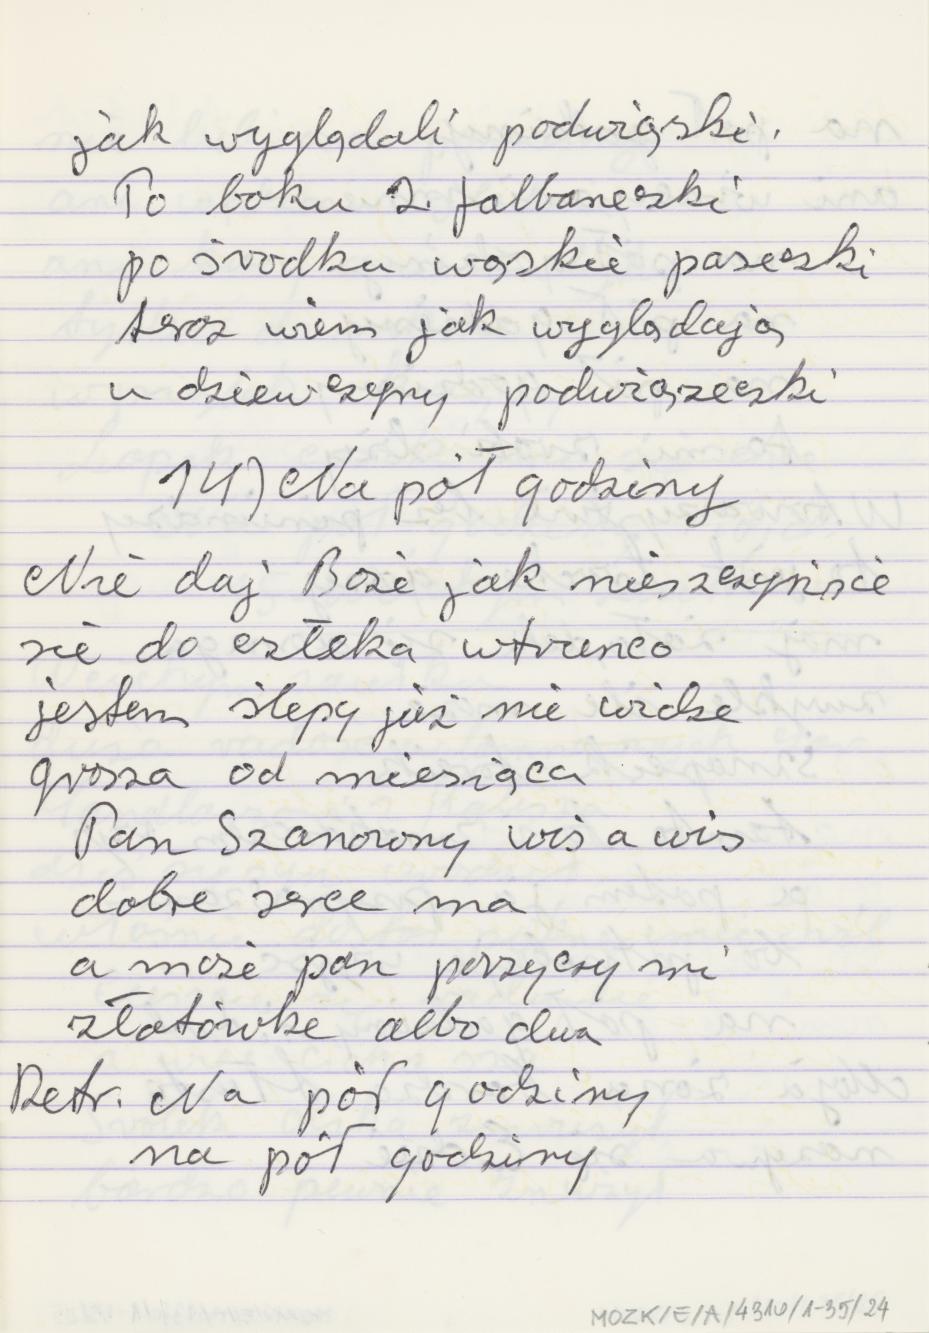 jak wyglądali podwiąski.
To boku 2. falbaneczki
po środku wąskie paseczki
teroz wiem jak wyglądają
u dziewczyny podwiązeczki
14) Na pół godziny
Nie daj Boże jak nieszczyńscie
sie do człeka wtrenco
jestem ślepy już nie widze
grosza od miesiąca
Pan Szanowny wis a wis
dobre serce ma
a może pan porzyczy mi
złotówke albo dwa
Retr. Na pół godziny
na pół godziny
MOZK/E/A/4310/1-35/24